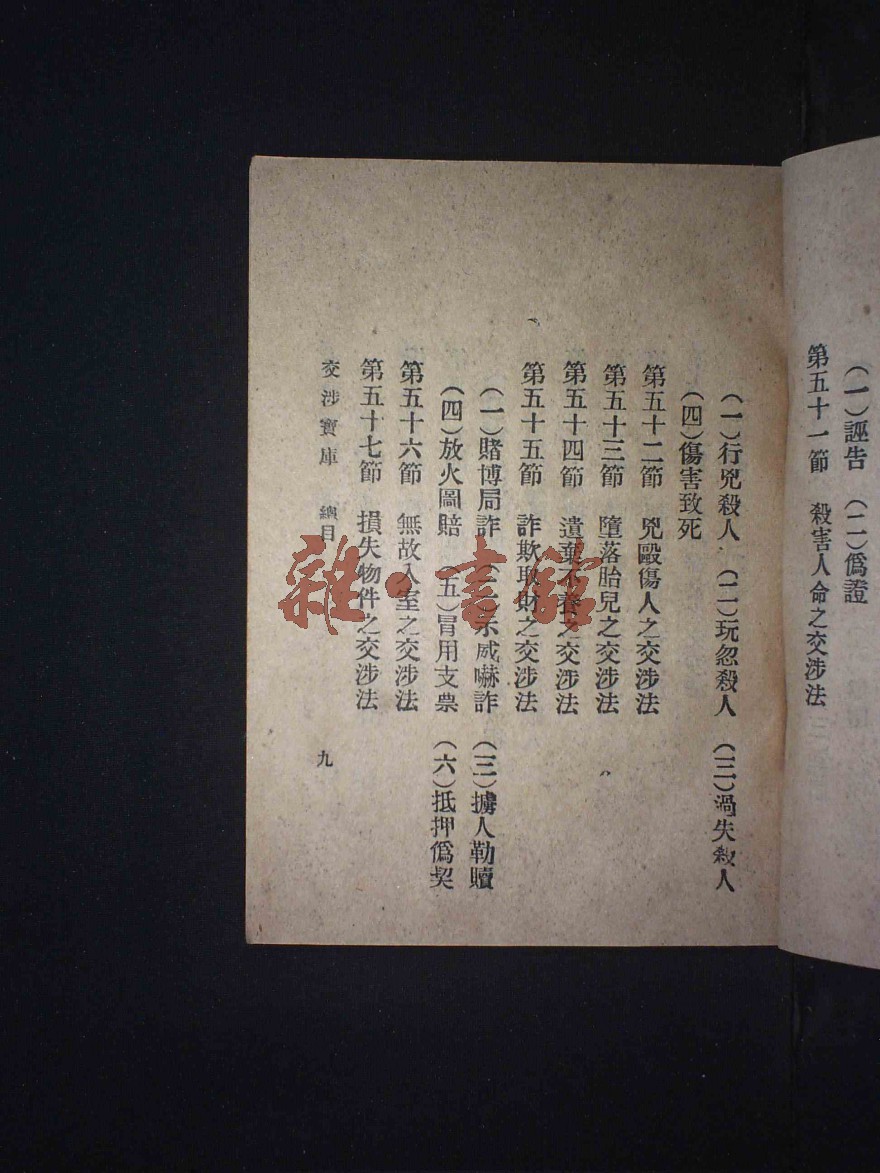 （一）誣告　（二）僞證
第五十一節　殺害人命之交涉法
（一）行兇殺人　（二）玩忽殺人　（三）過失殺人
（四）傷害致死
第五十二節　兇毆傷人之交涉法
第五十三節　墮落胎兒之交涉法
第五十四節　遺棄不養之交涉法
第五十五節　詐欺取財之交涉法
（一）賭博局詐　（二）示威嚇詐　（三）擄人勒贖
（四）放火圖賠　（五）冒用支票　（六）抵押僞契
第五十六節　無故入室之交涉法
第五十七節　損失物件之交涉法
交涉寶庫　總目　九
雜·書館